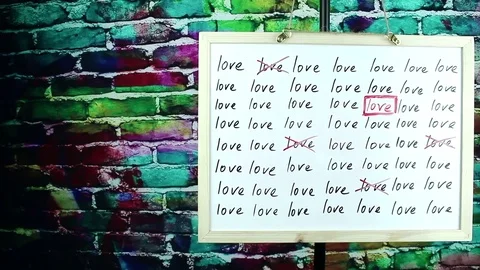 love love love love love love love
love love love love love love love
love love love love love love love
love love love love love love love
love love love love love love love
love love love love love love love
love love love love love love love
love love love love love love love